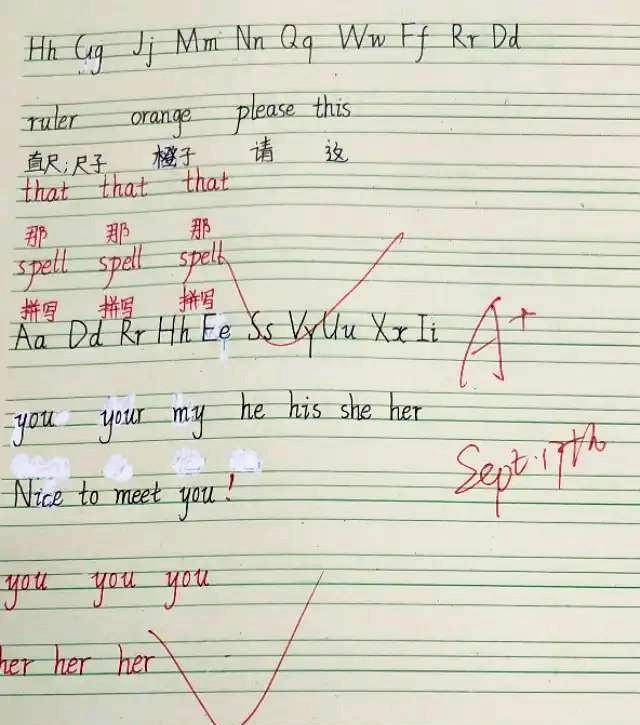 Hh Gg Jj Mm Nn Qq Ww Ff Rr Dd
ruler orange please this
直尺;尺子 橙子 请 这
that that that
那 那 那
spell spell spell
拼写 拼写 拼写
Aa Dd Rr Hh Ee Ss Vy Uu Xx Ii
A+
you your my he his she her
Sept.17th
Nice to meet you!
you you you
her her her